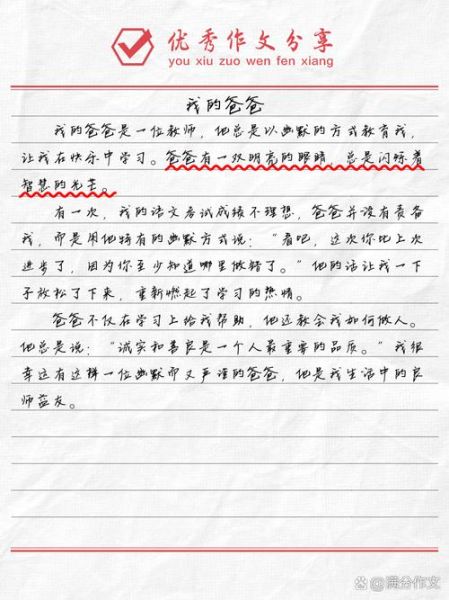 优秀作文分享
you xiu zuo wen fen xiang
我的爸爸
我的爸爸是一位教师，他总是以幽默的方式教育我，
让我在快乐中学习。爸爸有一双明亮的眼睛，总是闪烁着
智慧的光芒。
有一次，我的语文考试成绩不理想，爸爸并没有责备
我，而是用他特有的幽默方式说：“看吧，这次你比上次
进步了，因为你至少知道哪里做错了。”他的话让我一下
子放松了下来，重新燃起了学习的热情。
爸爸不仅在学习上给我帮助，他还教会我如何做人。
他总是说：“诚实和善良是一个人最重要的品质。”我很
幸运有这样一位幽默而又严谨的爸爸，他是我生活中的良
师益友。
@满分作文